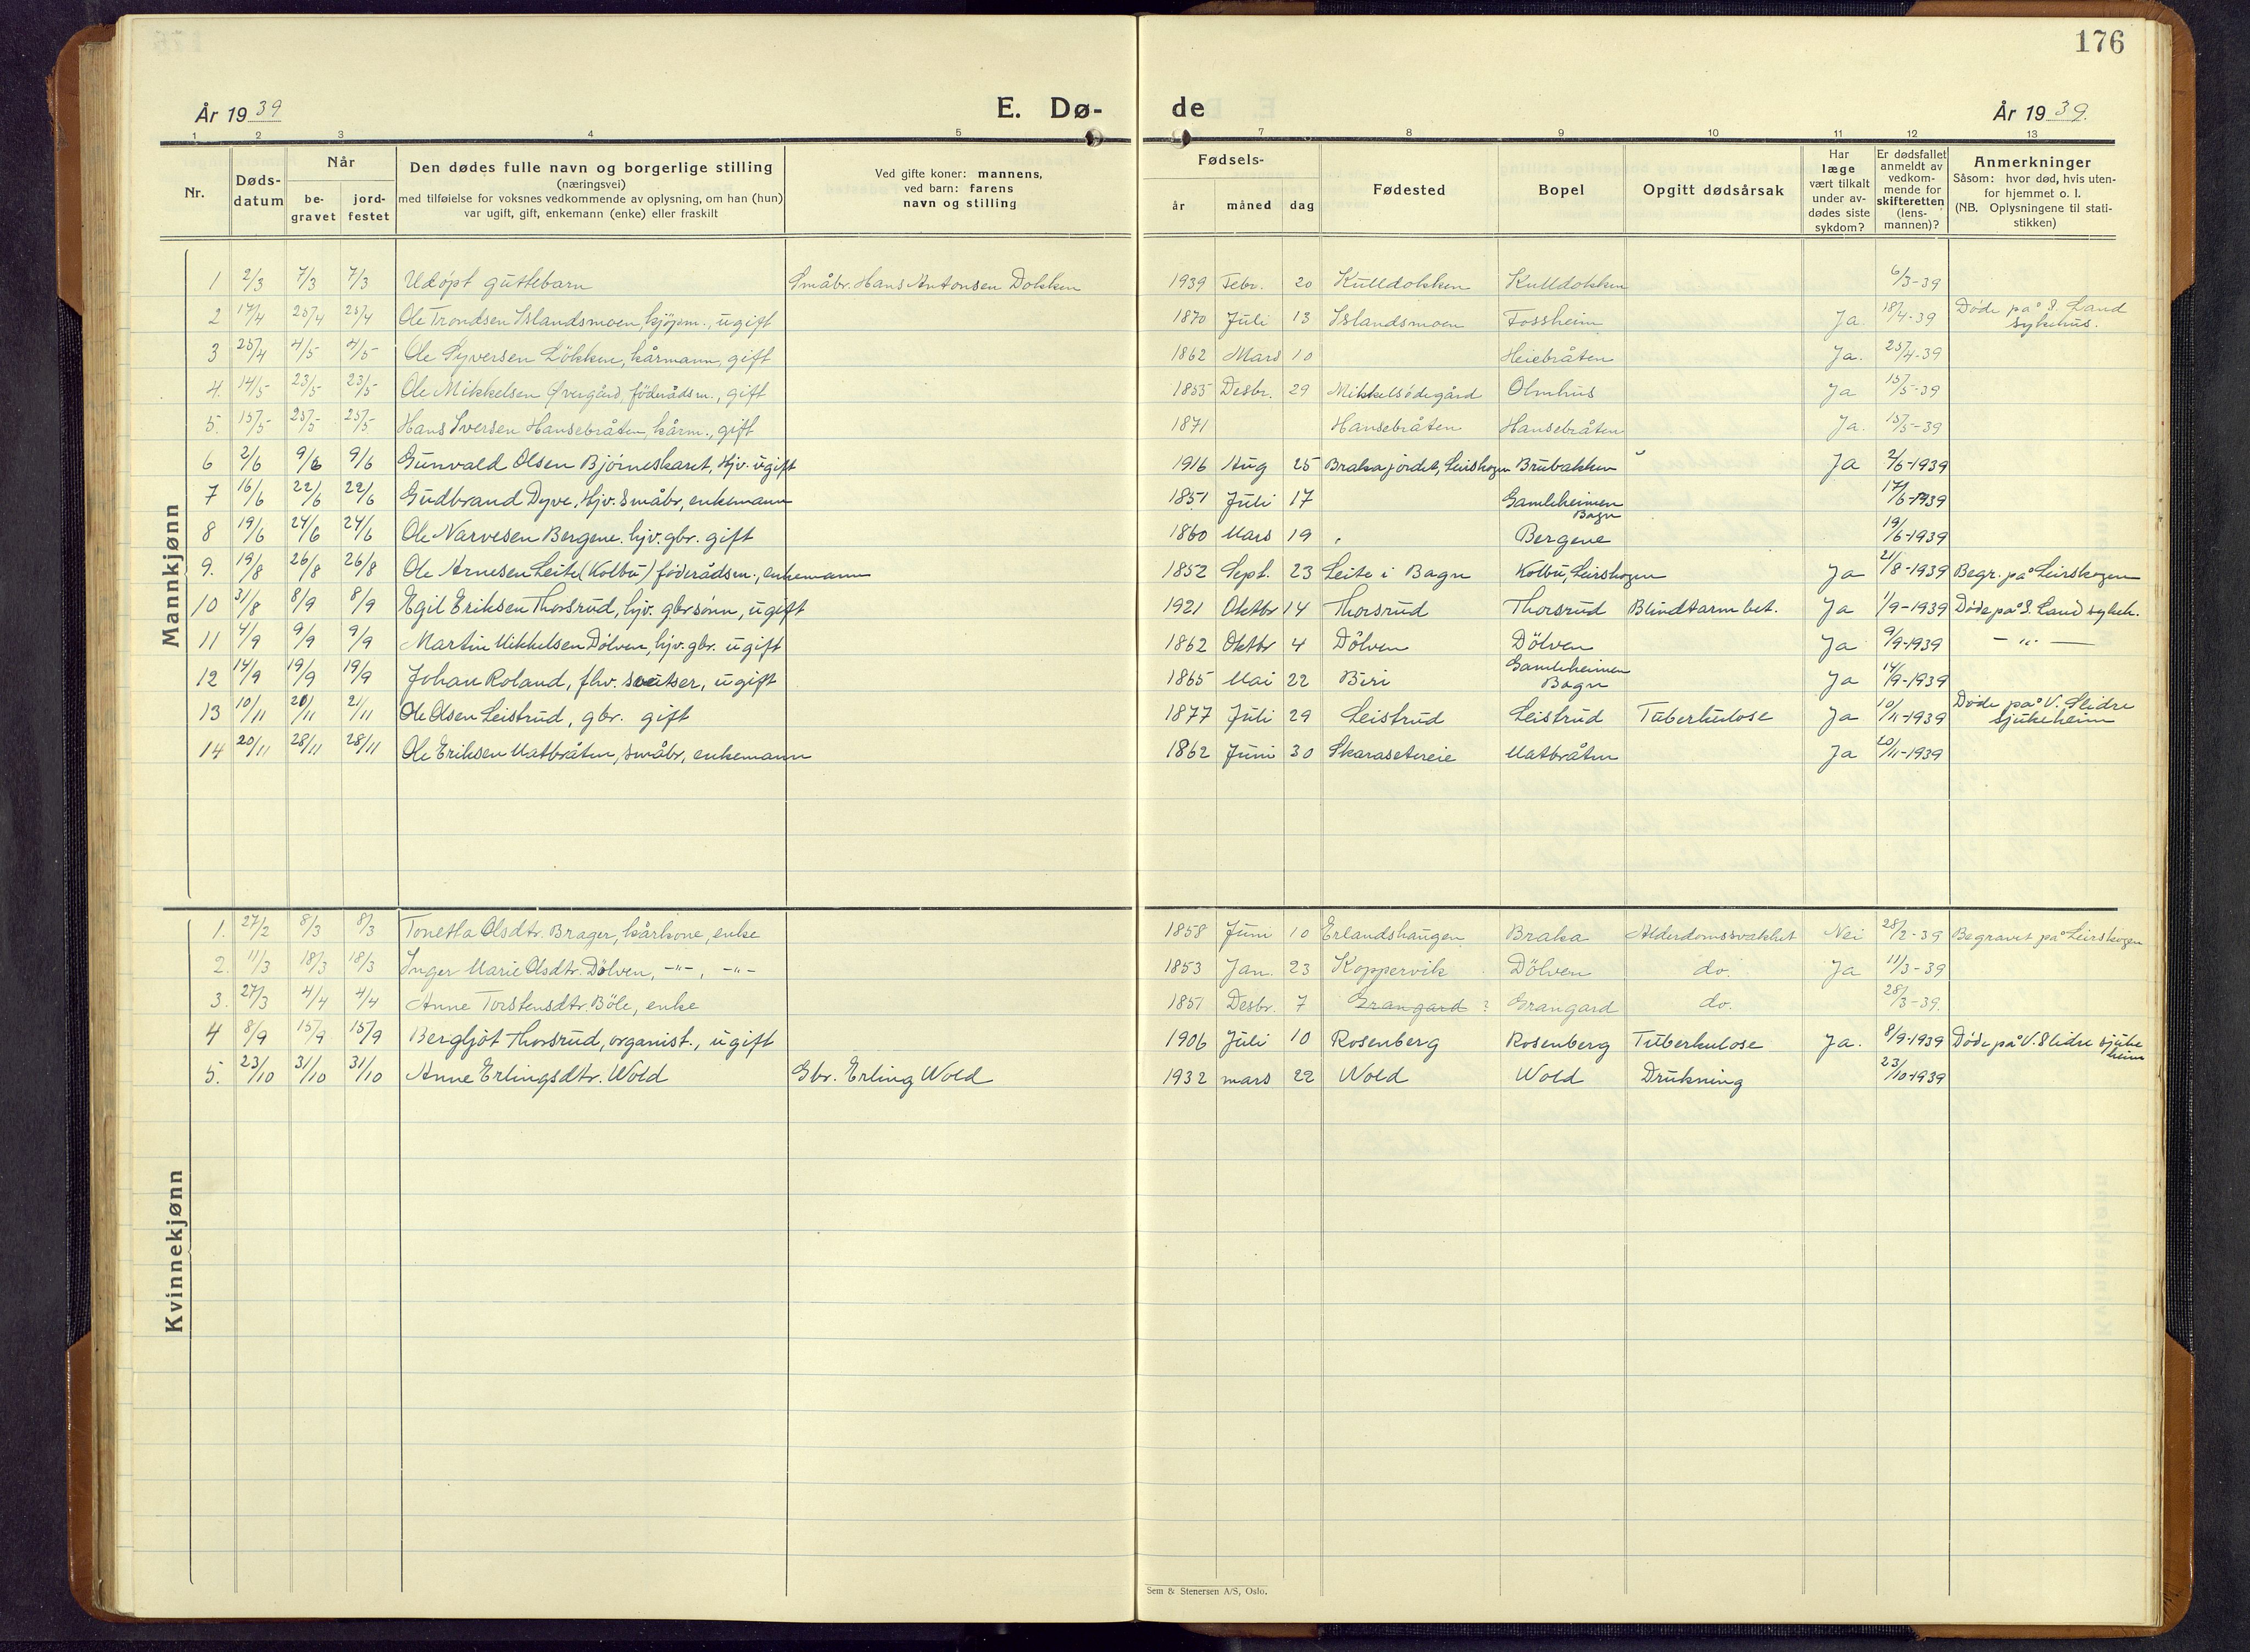 176
År 1939
E. Dø-
de
År 1939.
1 2 3 4 5 7 8 9 10 11 12 13
Nr.
Døds-
datum
Når
be-
gravet
jord-
festet
Den dødes fulle navn og borgerlige stilling
(næringsvei)
med tilføielse for voksnes vedkommende av oplysning, om han (hun)
var ugift, gift, enkemann (enke) eller fraskilt
Ved gifte koner: mannens,
ved barn: farens
navn og stilling
Fødsels-
år måned dag
Fødested
Bopel
Opgitt dødsårsak
Har
læge
vært tilkalt
under av-
dødes siste
sykdom?
Er dødsfallet
anmeldt av
vedkom-
mende for
skifteretten
(lens-
mannen)?
Anmerkninger
Såsom: hvor død, hvis uten-
for hjemmet o. l.
(NB. Oplysningene til stati-
stikken)
Mannkjønn
1 2/3 7/3 7/3 Udöpt guttebarn Småbr. Hans Antonsen Dokken 1939 Febr. 20 Kulldokken Kulldokken 6/3-39
2 17/4 25/4 25/4 Ole Trondsen Islandsmoen, kjöpm., ugift 1870 Juli 13 Islandsmoen Fossheim Ja. 18/4-39 Döde på S. Land
sykehus.
3 25/4 4/5 4/5 Ole Syversen Lökken, kårmann, gift 1862 Mars 10 Heiebråten Ja. 25/4-39
4. 14/5 23/5 23/5 Ole Mikkelsen Øvergård, föderådsm., gift 1855 Desbr. 29 Mikkelsödegård Olmhus Ja 15/5-39
5. 15/5 25/5 25/5 Hans Iversen Hansebråten, kårm., gift 1871 Hansebråten Hansebråten Ja. 15/5-39
6 2/6 9/6 9/6 Gunvald Olsen Bjørneskaret, Hjv. ugift 1916 Aug 25 Brakajordet, Leirskogen Brubakken Ja 2/6-1939
7 16/6 22/6 22/6 Gudbrand Dyve, Hjv. Småbr, enkemann 1851 Juli 17 Gamleheimen
Bagn 17/6-1939
8 19/6 24/6 24/6 Ole Narvesen Bergene. hjv. gbr. gift 1860 Mars 19 Bergene 19/6-1939
9. 19/8 26/8 26/8 Ole Arnesen Leite (Kolbu) föderådsm., enkemann 1852 Sept. 23 Leite i Bagn Kolbu, Leirskogen Ja 21/8-1939 Begr. på Leirskogen
10 31/8 8/9 8/9 Egil Eriksen Thorsrud, hjv. gbr sønn, ugift 1921 Oktbr 14 Thorsrud Thorsrud Blindtarm bet. Ja 1/9-1939 Döde på S. Land sykeh.
11 4/9 9/9 9/9 Martin Mikkelsen Dölven, hjv. gbr. ugift 1862 Oktbr 4 Dölven Dölven Ja 9/9-1939 — " —
12 14/9 19/9 19/9 Johan Roland, fhv. sveitser, ugift 1865 Mai 22 Biri Gamleheimen
Bagn Ja 14/9-1939
13 10/11 20/11 21/11 Ole Olsen Leistrud, gbr. gift 1877 Juli 29 Leistrud Leistrud Tuberkulose Ja 10/11-1939 Döde på V. Slidre
sjukeheim
14 20/11 28/11 28/11 Ole Eriksen Matbråten, småbr, enkemann 1862 Juni 30 Skarasetereie Matbråten Ja 20/11-1939
Kvinnekjønn
1. 27/2 8/3 8/3 Tonetta Olsdtr. Brager, kårkone, enke 1858 Juni 10 Erlandshaugen Braka Alderdomssvakhet Nei 28/2-39 Begravet på Leirskogen
2. 11/3 18/3 18/3 Inger Marie Olsdtr. Dölven, -"-, -"- 1853 Jan. 23 Koppervik Dölven do. Ja 11/3-39
3. 27/3 4/4 4/4 Anne Torstensdtr. Böle, enke 1851 Desbr. 7 Grangard ? Grangard do. 28/3-39.
4 8/9 15/9 15/9 Bergljot Thorsrud, organist., ugift 1906 Juli 10 Rosenberg Rosenberg Tuberkulose Ja. 8/9-1939 Döde på V. Slidre sjuke
heim
5. 23/10 31/10 31/10 Anne Erlingsdtr. Wold Gbr. Erling Wold 1932 mars 22 Wold Wold Drukning 23/10-1939
Sem & Stenersen A/S, Oslo.